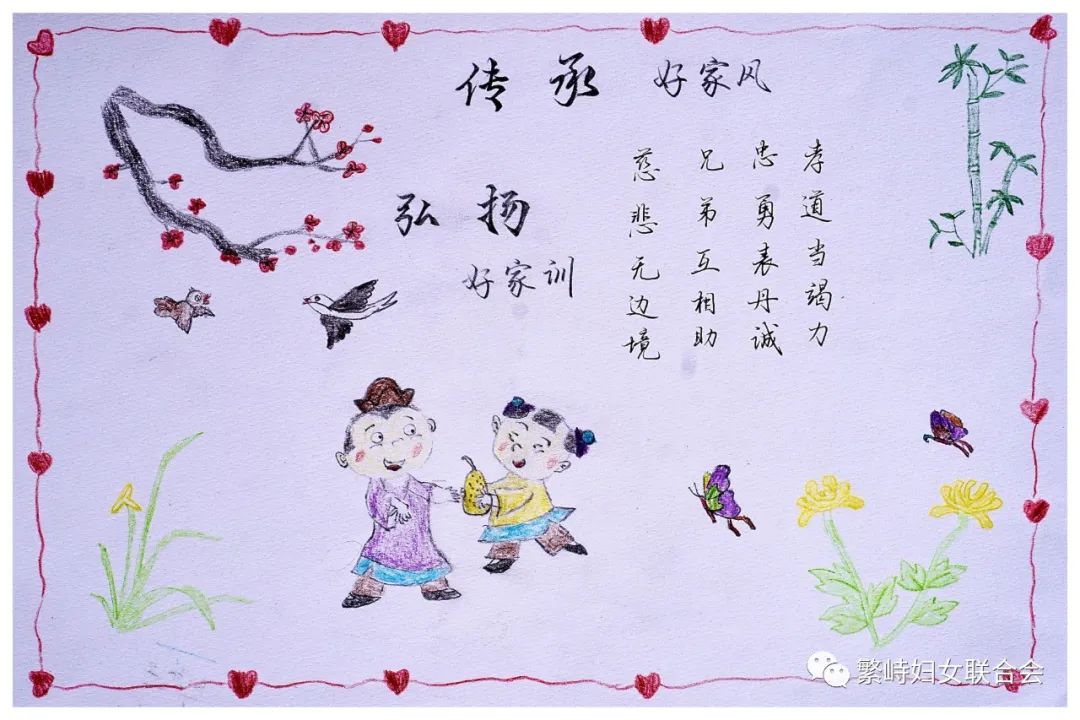 传承 好家风
弘扬
好家训
孝道当竭力
忠勇表丹诚
兄弟互相助
慈悲无边境
繁峙妇女联合会